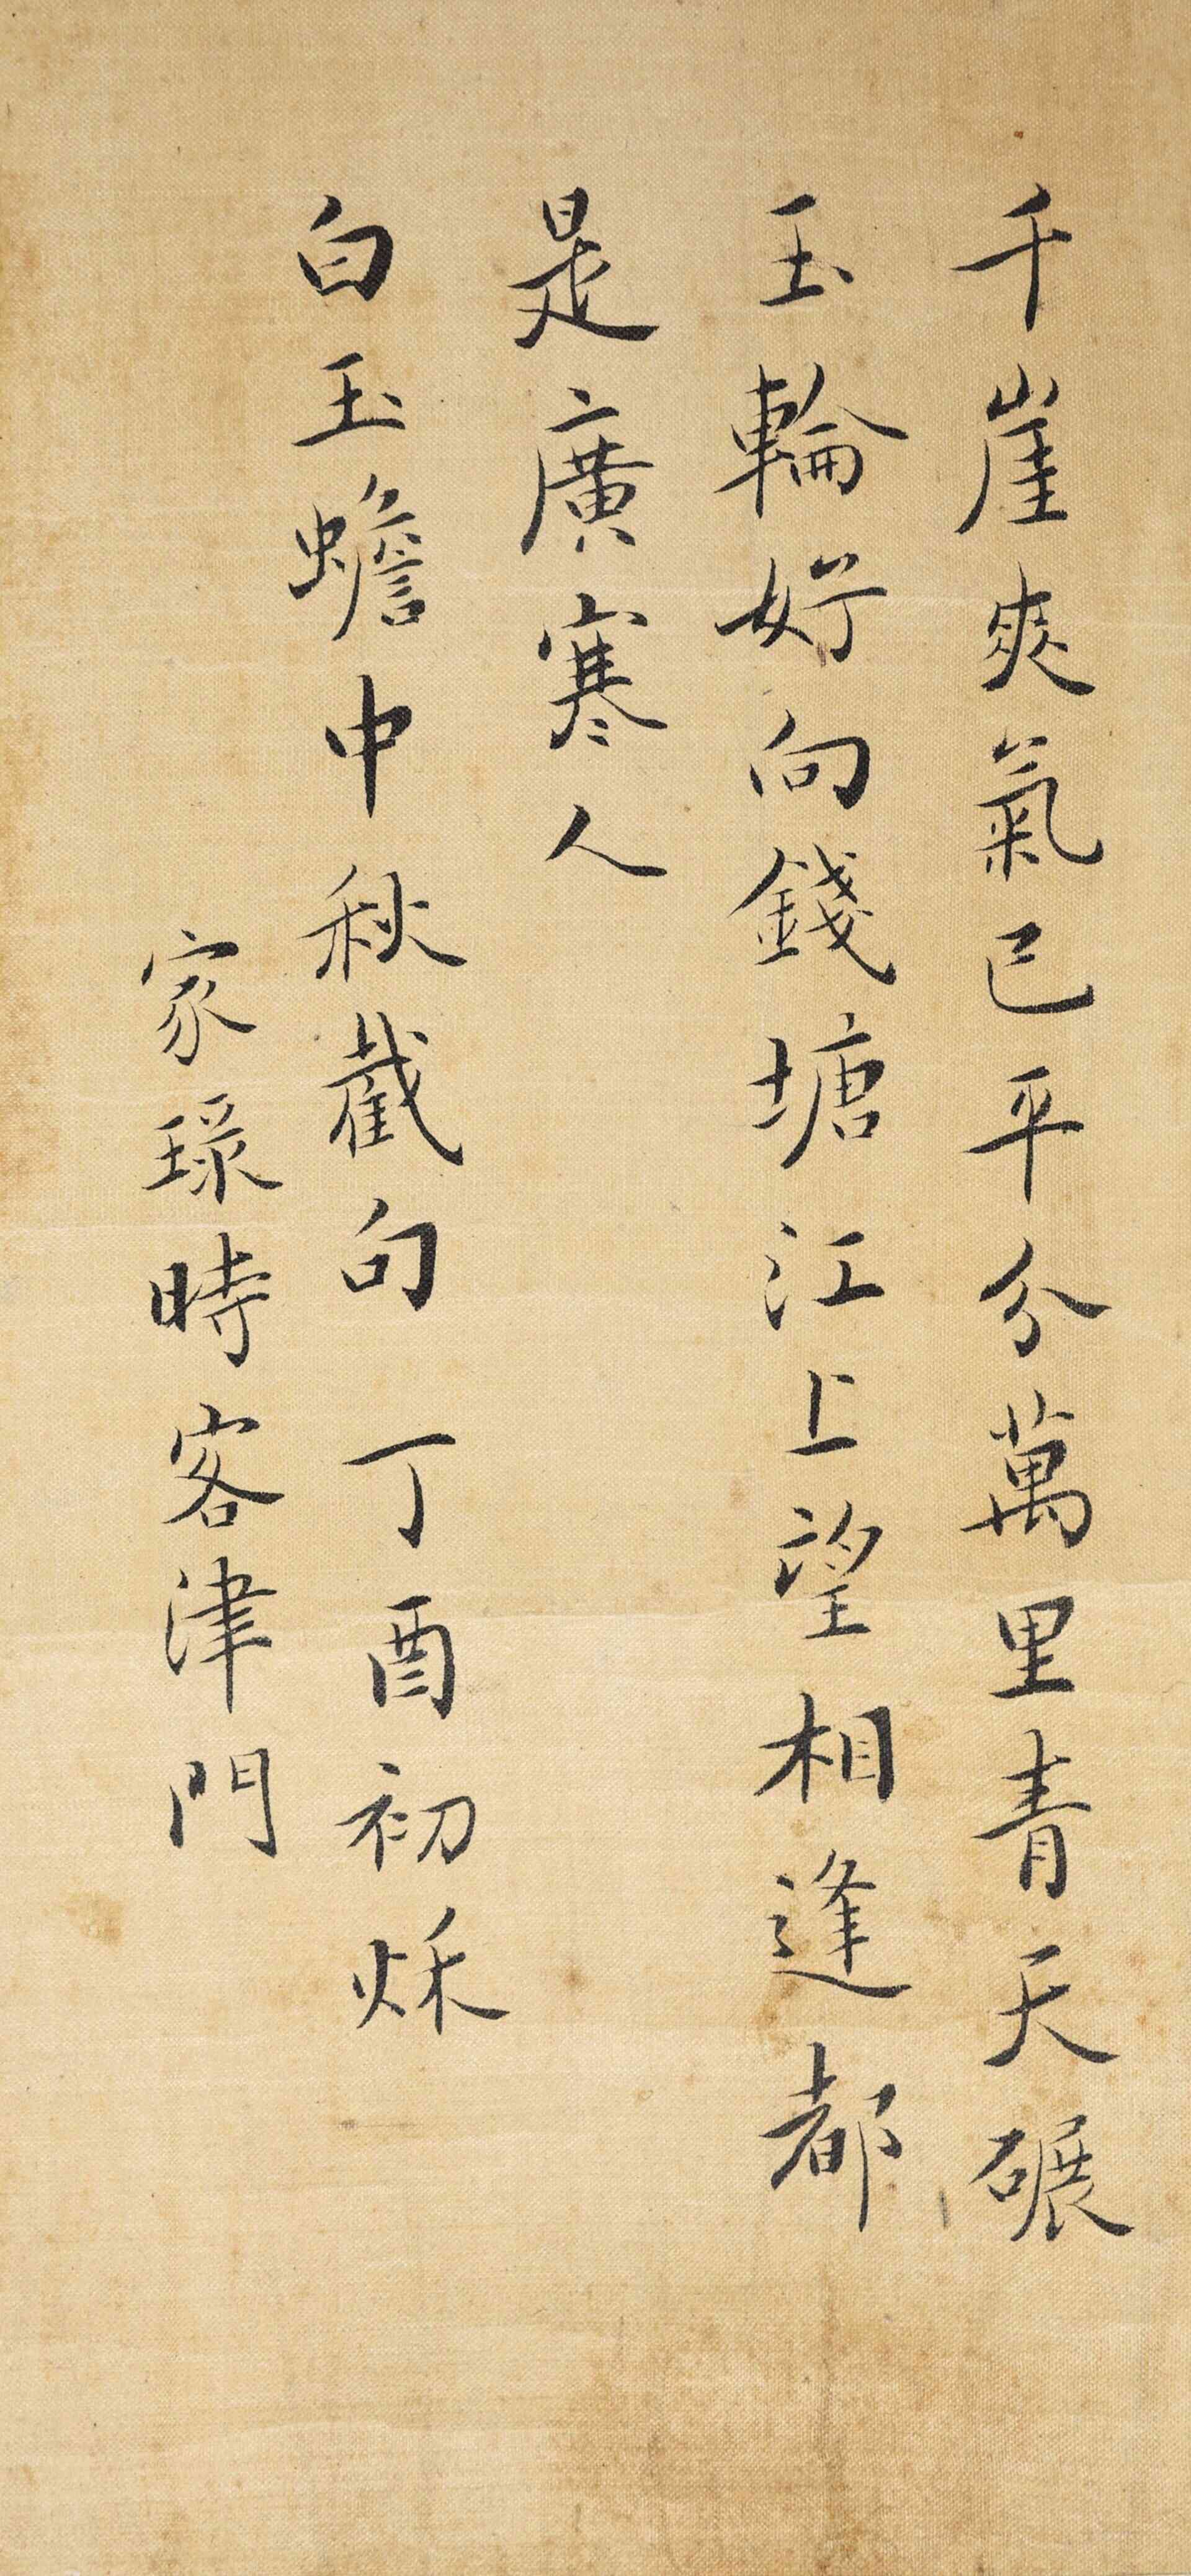 千崖爽氣已平分萬里青天碾
玉輪好向錢塘江上望相逢都
是廣寒人
白玉蟾中秋截句丁酉初秌
家瑔時客津門